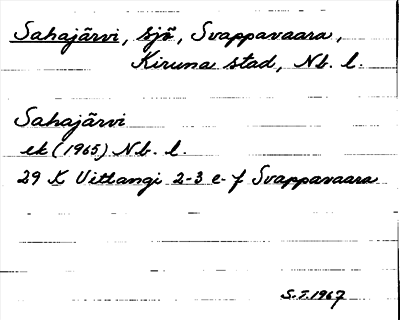 Sahajärvi, sjö, Svappavaara,
Kiruna stad, Nb. l.
Sahajärvi
ek (1965) Nb. l.
29 K Vittangi 2-3 e-f Svappavaara
S.T. 1967